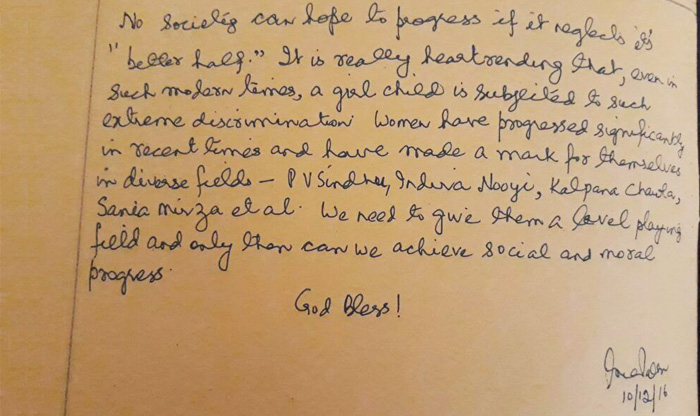 No society can hope to progress if it neglects its
"better half." It is really heartrending that, even in
such modern times, a girl child is subjected to such
extreme discrimination. Women have progressed significantly
in recent times and have made a mark for themselves
in diverse fields – P V Sindhu, Indira Nooyi, Kalpana Chawla,
Sania Mirza et al. We need to give them a level playing
field and only then can we achieve social and moral
progress.
God Bless!
10/12/16